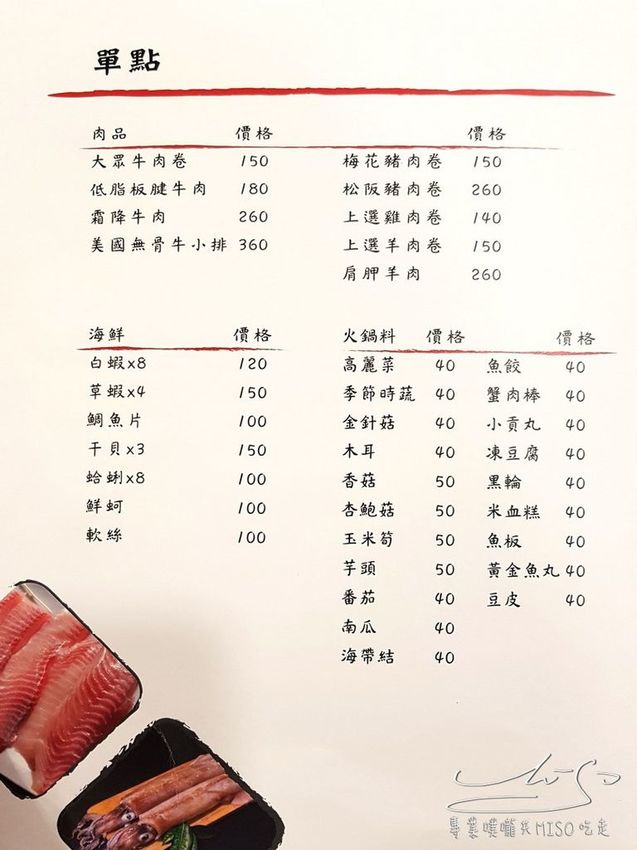 單點
肉品 價格
大眾牛肉卷 150
低脂板腱牛肉 180
霜降牛肉 260
美國無骨牛小排 360
價格
梅花豬肉卷 150
松阪豬肉卷 260
上選雞肉卷 140
上選羊肉卷 150
肩胛羊肉 260
海鮮 價格
白蝦x8 120
草蝦x4 150
鯛魚片 100
干貝x3 150
蛤蜊x8 100
鮮蚵 100
軟絲 100
火鍋料 價格
高麗菜 40
季節時蔬 40
金針菇 40
木耳 40
香菇 50
杏鮑菇 50
玉米筍 50
芋頭 50
番茄 40
南瓜 40
海帶結 40
價格
魚餃 40
蟹肉棒 40
小貢丸 40
凍豆腐 40
黑輪 40
米血糕 40
魚板 40
黃金魚丸 40
豆皮 40
MiSo
專業噗嚨共MISO吃走